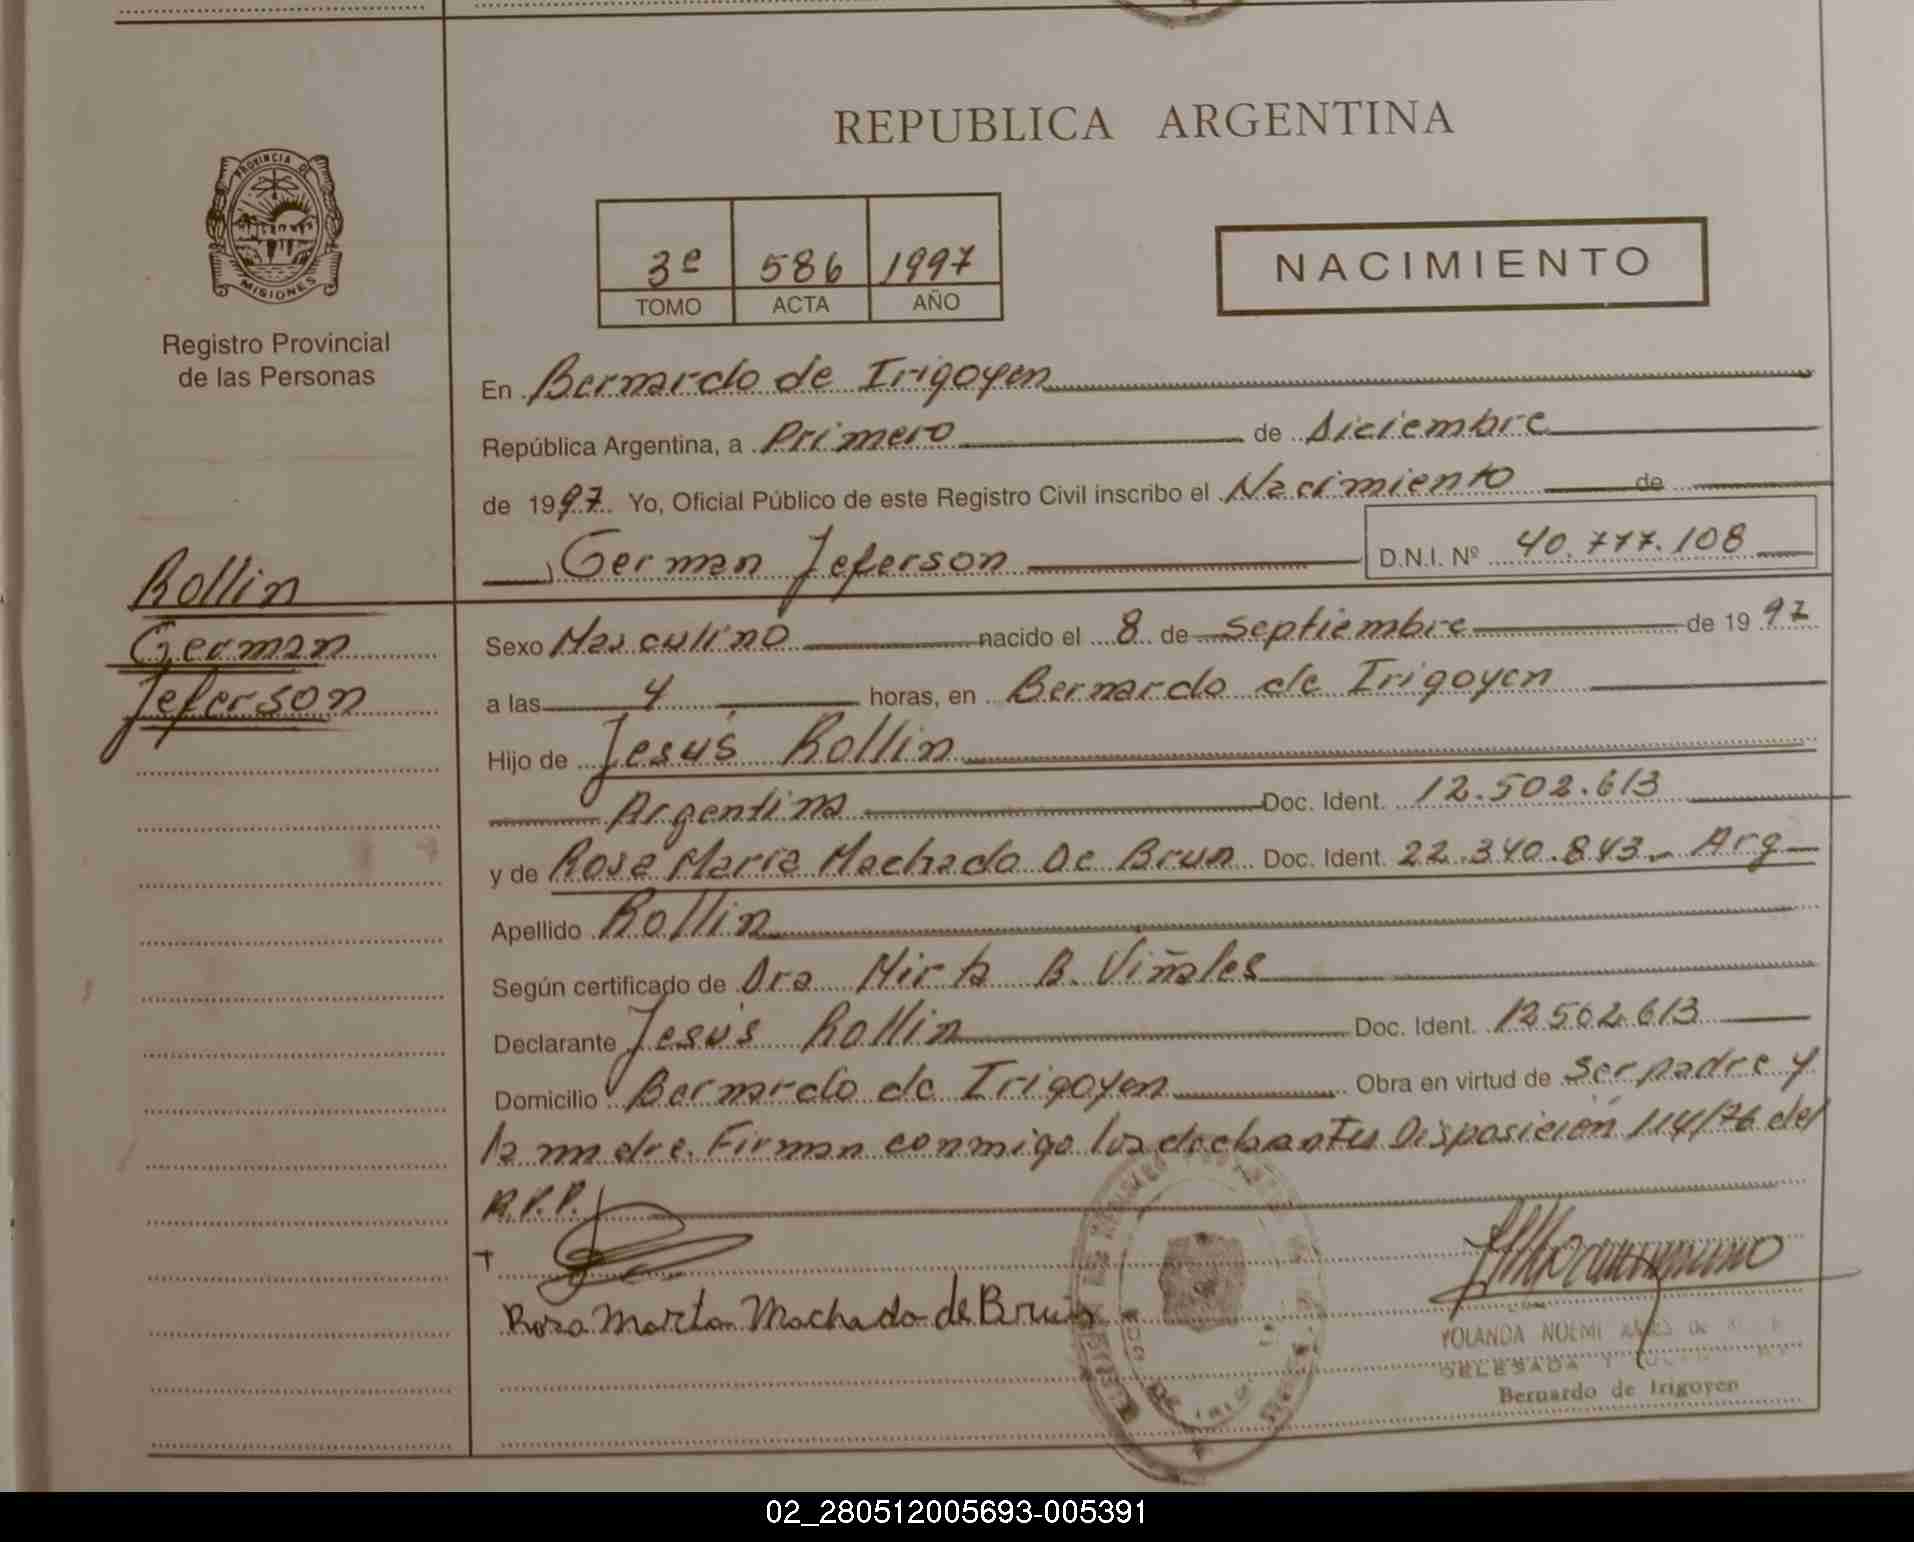 REPUBLICA ARGENTINA
PROVINCIA DE
MISIONES
Registro Provincial
de las Personas
3º 586 1997
TOMO ACTA AÑO
NACIMIENTO
En Bernardo de Irigoyen
República Argentina, a Primero de Diciembre
de 1997 Yo, Oficial Público de este Registro Civil inscribo el Nacimiento de
German Jeferson D.N.I. Nº 40.777.108
Rollin
German
Jeferson
Sexo Masculino nacido el 8 de septiembre de 1997
a las 4 horas, en Bernardo de Irigoyen
Hijo de Jesús Rollin
Argentina Doc. Ident. 12.502.613
y de Rosa Maria Machado De Brun Doc. Ident. 22.340.843.- Arg
Apellido Rollin
Según certificado de Dra Mirta B. Viñales
Declarante Jesús Rollin Doc. Ident. 12502613
Domicilio Bernardo de Irigoyen Obra en virtud de ser padre y
la madre. Firman conmigo los declarantes Disposición 114/76 del
R.P.P.
Rosa Marta Machado de Brun
YOLANDA NOEMI
DELEGADA
Bernardo de Irigoyen
02_280512005693-005391